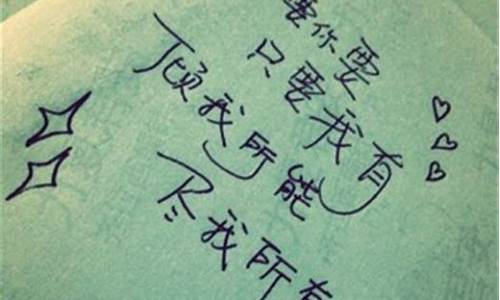 要你要
只要我有
倾我所能
尽我所有